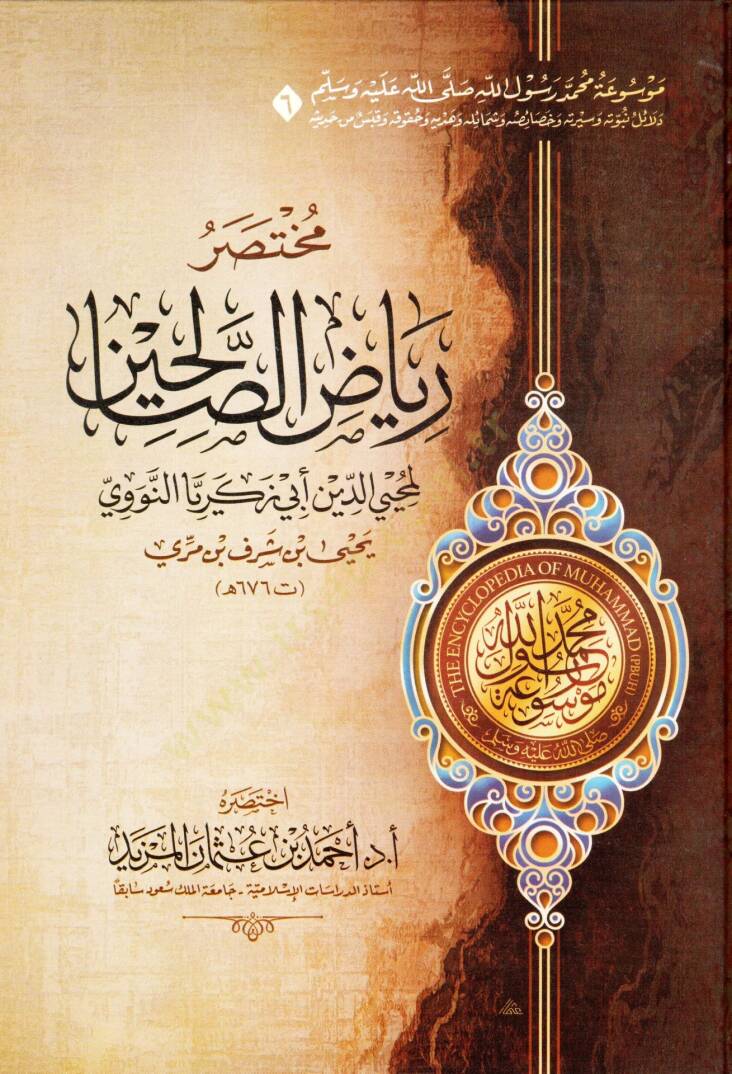 مَوْسُوعَةُ مُحَمَّدٍ رَسُوْلِ اللهِ صَلَّى اللهُ عَلَيْهِ وَسَلَّم
٦
دَلَائِلُ نُبُوَّتِه وَسِيرَتِه وَخَصَائِصُه وَشَمَائِلُه وَهَدْيِه وَحُقُوقِه وَقَبَسٌ مِن حَدِيثِه
مُخْتَصَرُ
رِيَاضِ الصَّالِحِيْنَ
لِمُحْيِي الدِّين أَبِي زَكَرِيَّا النَّوَوِيِّ
يَحْيَى بْن شَرَف بْن مُرِّي
(ت ٦٧٦هـ)
THE ENCYCLOPEDIA OF MUHAMMAD (PBUH)
مُحَمَّد رَسُول اللهِ
مَوْسُوعَة
صَلَّى اللهُ عَلَيْهِ وَسَلَّم
اخْتَصَرَهُ
أ.د. أَحْمَدُ بْنُ عُثْمَانَ المَزْيَد
أستاذ الدراسات الإسْلاميّة - جَامعَة الملك سُعود سَابقًا